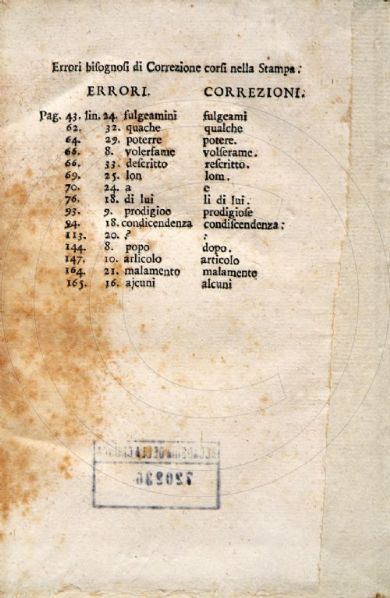 Errori bisognosi di Correzione corsi nella Stampa.
ERRORI. CORREZIONI.
Pag. 43. lin. 24. fulgeamini fulgeami
62. 32. quache qualche
64. 29. poterre potere.
66. 8. volersame volserame.
66. 33. descritto rescritto.
69. 25. lon lom.
70. 24. a e
76. 18. di lui li di lui.
93. 9. prodigioo prodigiose
94. 18. condicendenza condiscendenza:
113. 20. ? :
144. 8. popo dopo.
147. 10. arlicolo articolo
164. 21. malamento malamente
165. 16. ajcuni alcuni
720236